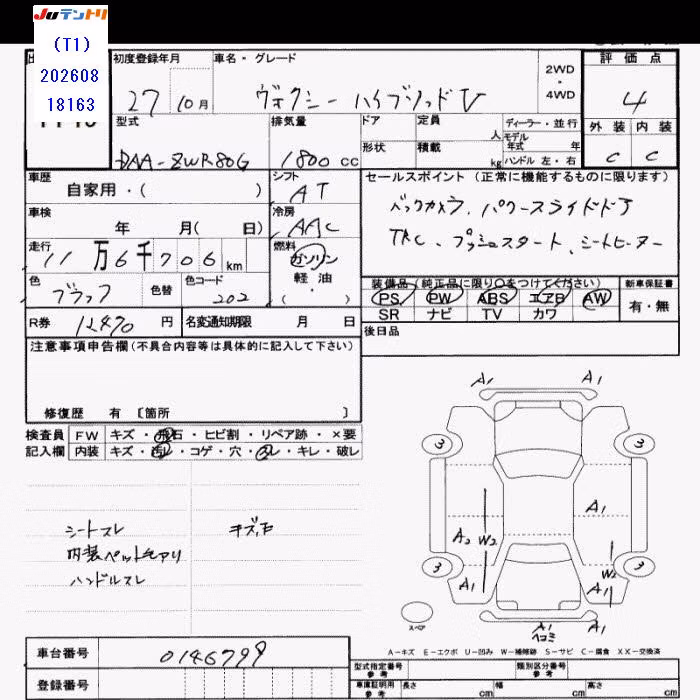 JUテントリ
(T1)
202608
18163
初度登録年月
車名・グレード
2WD
・
4WD
評価点
27 10月
ヴォクシー ハイブリッドV
4
型式
排気量
ドア
定員
人
ディーラー・並行
モデル
年式 年
外装 内装
DAA-ZWR80G
1800 cc
形状
積載
kg
ハンドル 左・右
C C
車歴
自家用・( )
シフト
AT
セールスポイント (正常に機能するものに限ります)
バックカメラ、パワースライドドア
TRC、プッシュスタート、シートヒーター
車検
年 月( 日)
冷房
AAC
走行
11万6千706km
燃料
ガソリン
軽油
( ・ )
色
ブラック
色替
色コード
202
装備品(純正品に限り○をつけてください)
新車保証書
PS PW ABS エアB AW
SR ナビ TV カワ
有・無
R券 12470円
名変通知期限 月 日
後日品
注意事項申告欄(不具合内容等は具体的に記入して下さい)
修復歴 有 〔箇所 〕
検査員
記入欄
FW キズ・飛石・ヒビ割・リペア跡・×要
内装 キズ・汚レ・コゲ・穴・スレ・キレ・破レ
シートスレ
内装ペット毛アリ
ハンドルスレ
A1 A1
3 3
A1
A2 W2
3 3
W2
A1 A1
スペア
A1
ヘコミ
A1
A−キズ E−エクボ U−凹み W−補修跡 S−サビ C−腐食 XX−交換済
車台番号 0146799
登録番号
型式指定番号
参考
類別区分番号
参考
車庫証明用
参考
長さ cm
幅 cm
高さ cm